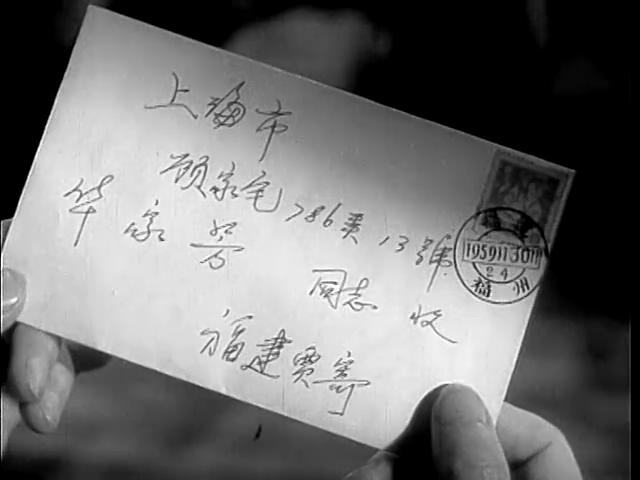 上海市
顾家宅786弄13號
华家芳 同志 收
福建贾寄
福建
19591130
24
福州